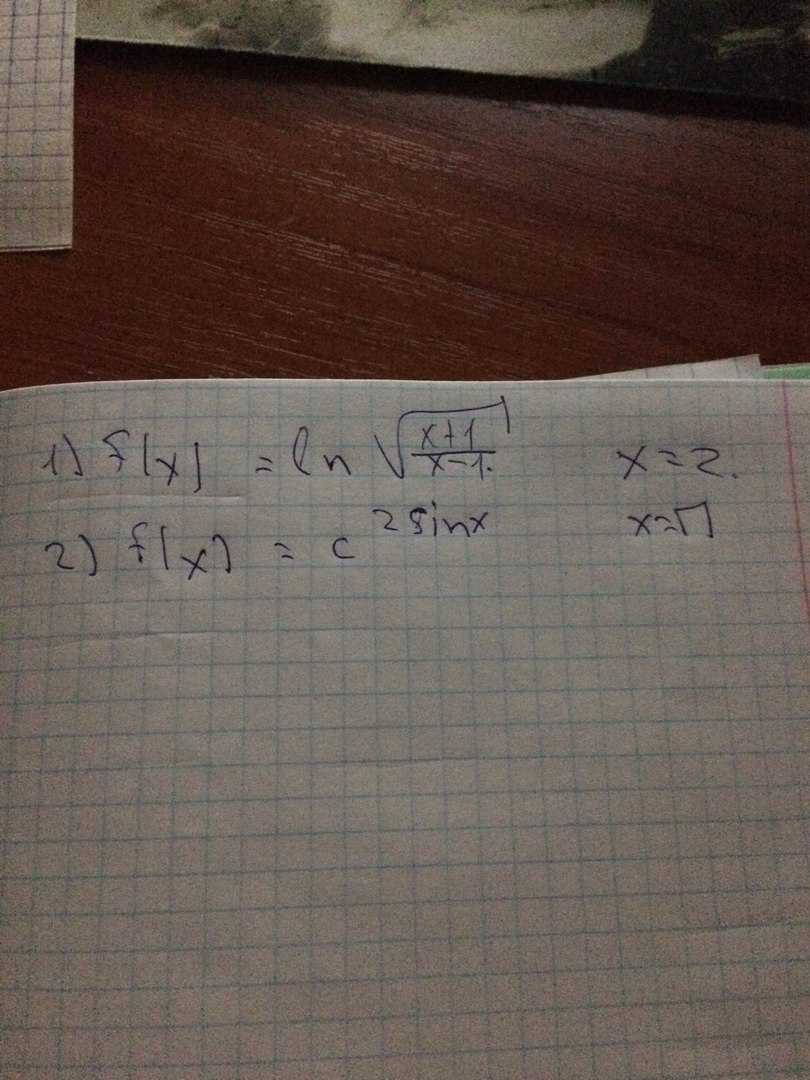 1) f(x) = ln √((x+1)/(x-1)) x=2.
2) f(x) = c^(2sinx) x=П